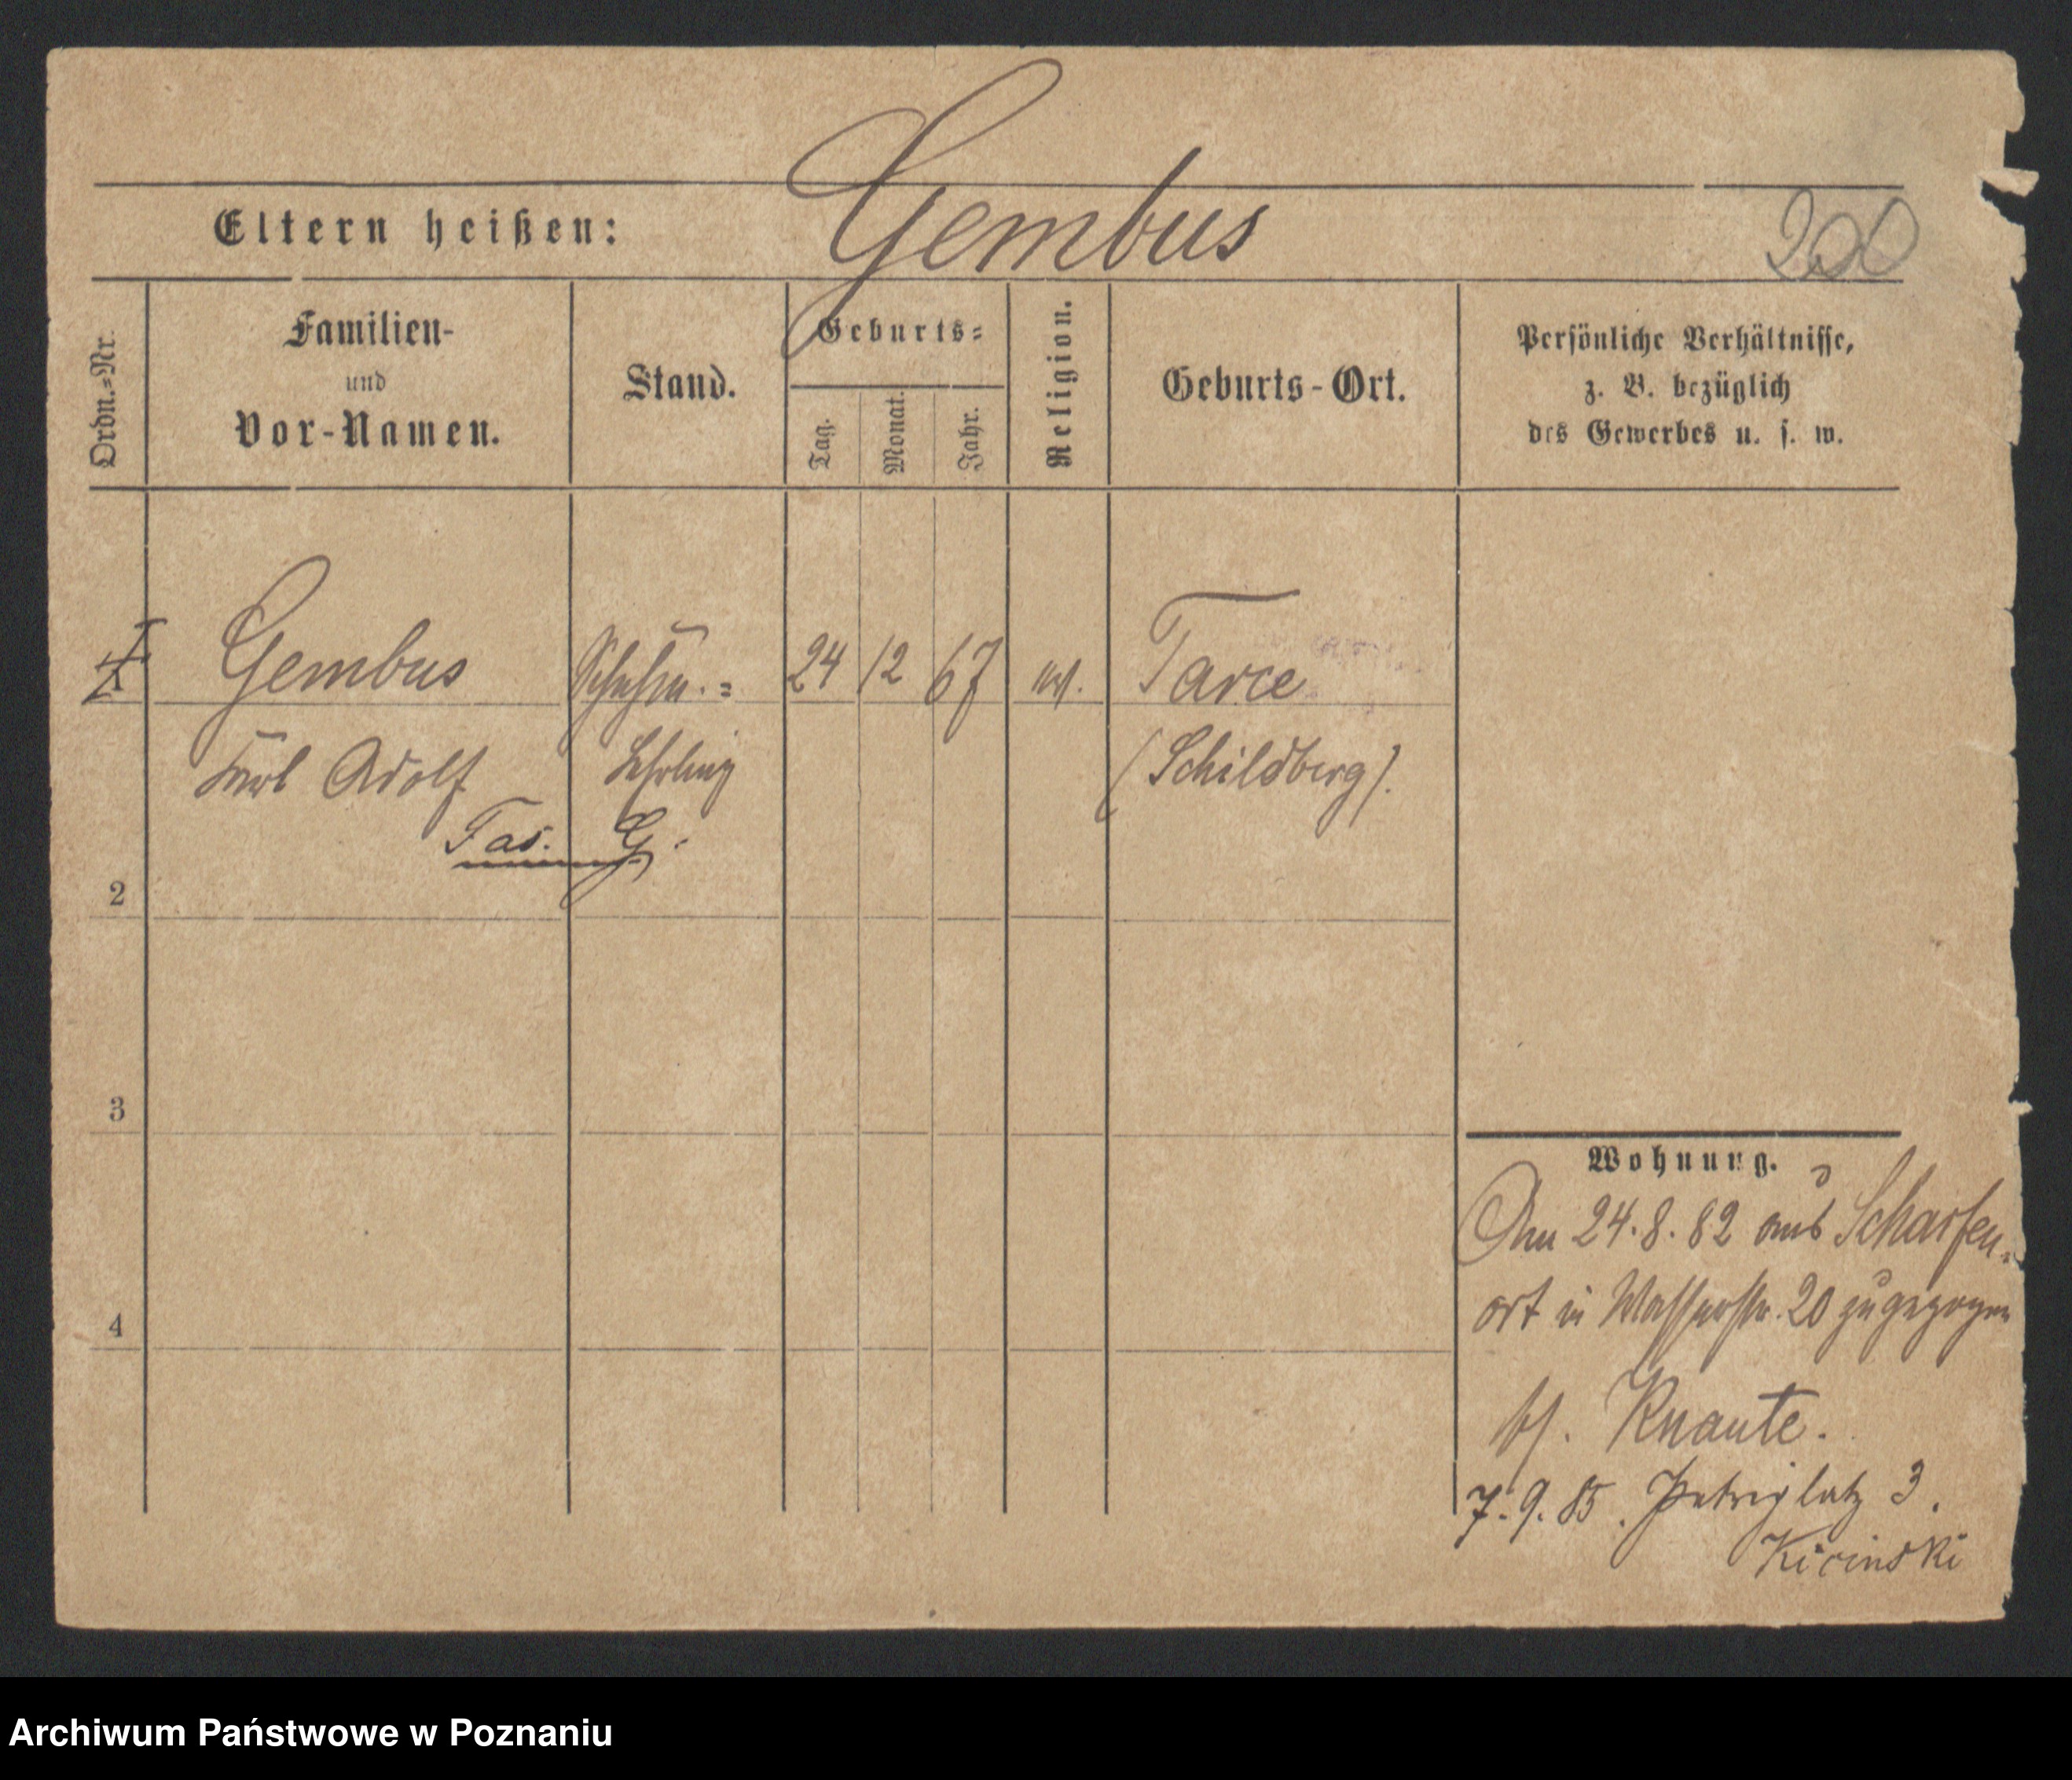 Gembus
Eltern heißen:
200
Ordn.=Nr.
Familien-
und
Vor-Namen.
Stand.
Geburts=
Tag.
Monat.
Jahr.
Religion.
Geburts-Ort.
Persönliche Verhältnisse,
z. B. bezüglich
des Gewerbes u. s. w.
Gembus
Schuhm.=
24
12
67
ev.
Tarce
Karl Adolf
Lehrling
(Schildberg).
Fas. G.
2
3
4
Wohnung.
Am 24.8.82 aus Scharfen-
ort in Wasserstr. 20 zugezogen
b/. Knaute.
7.9.85. Petriplatz 3.
Kicinski